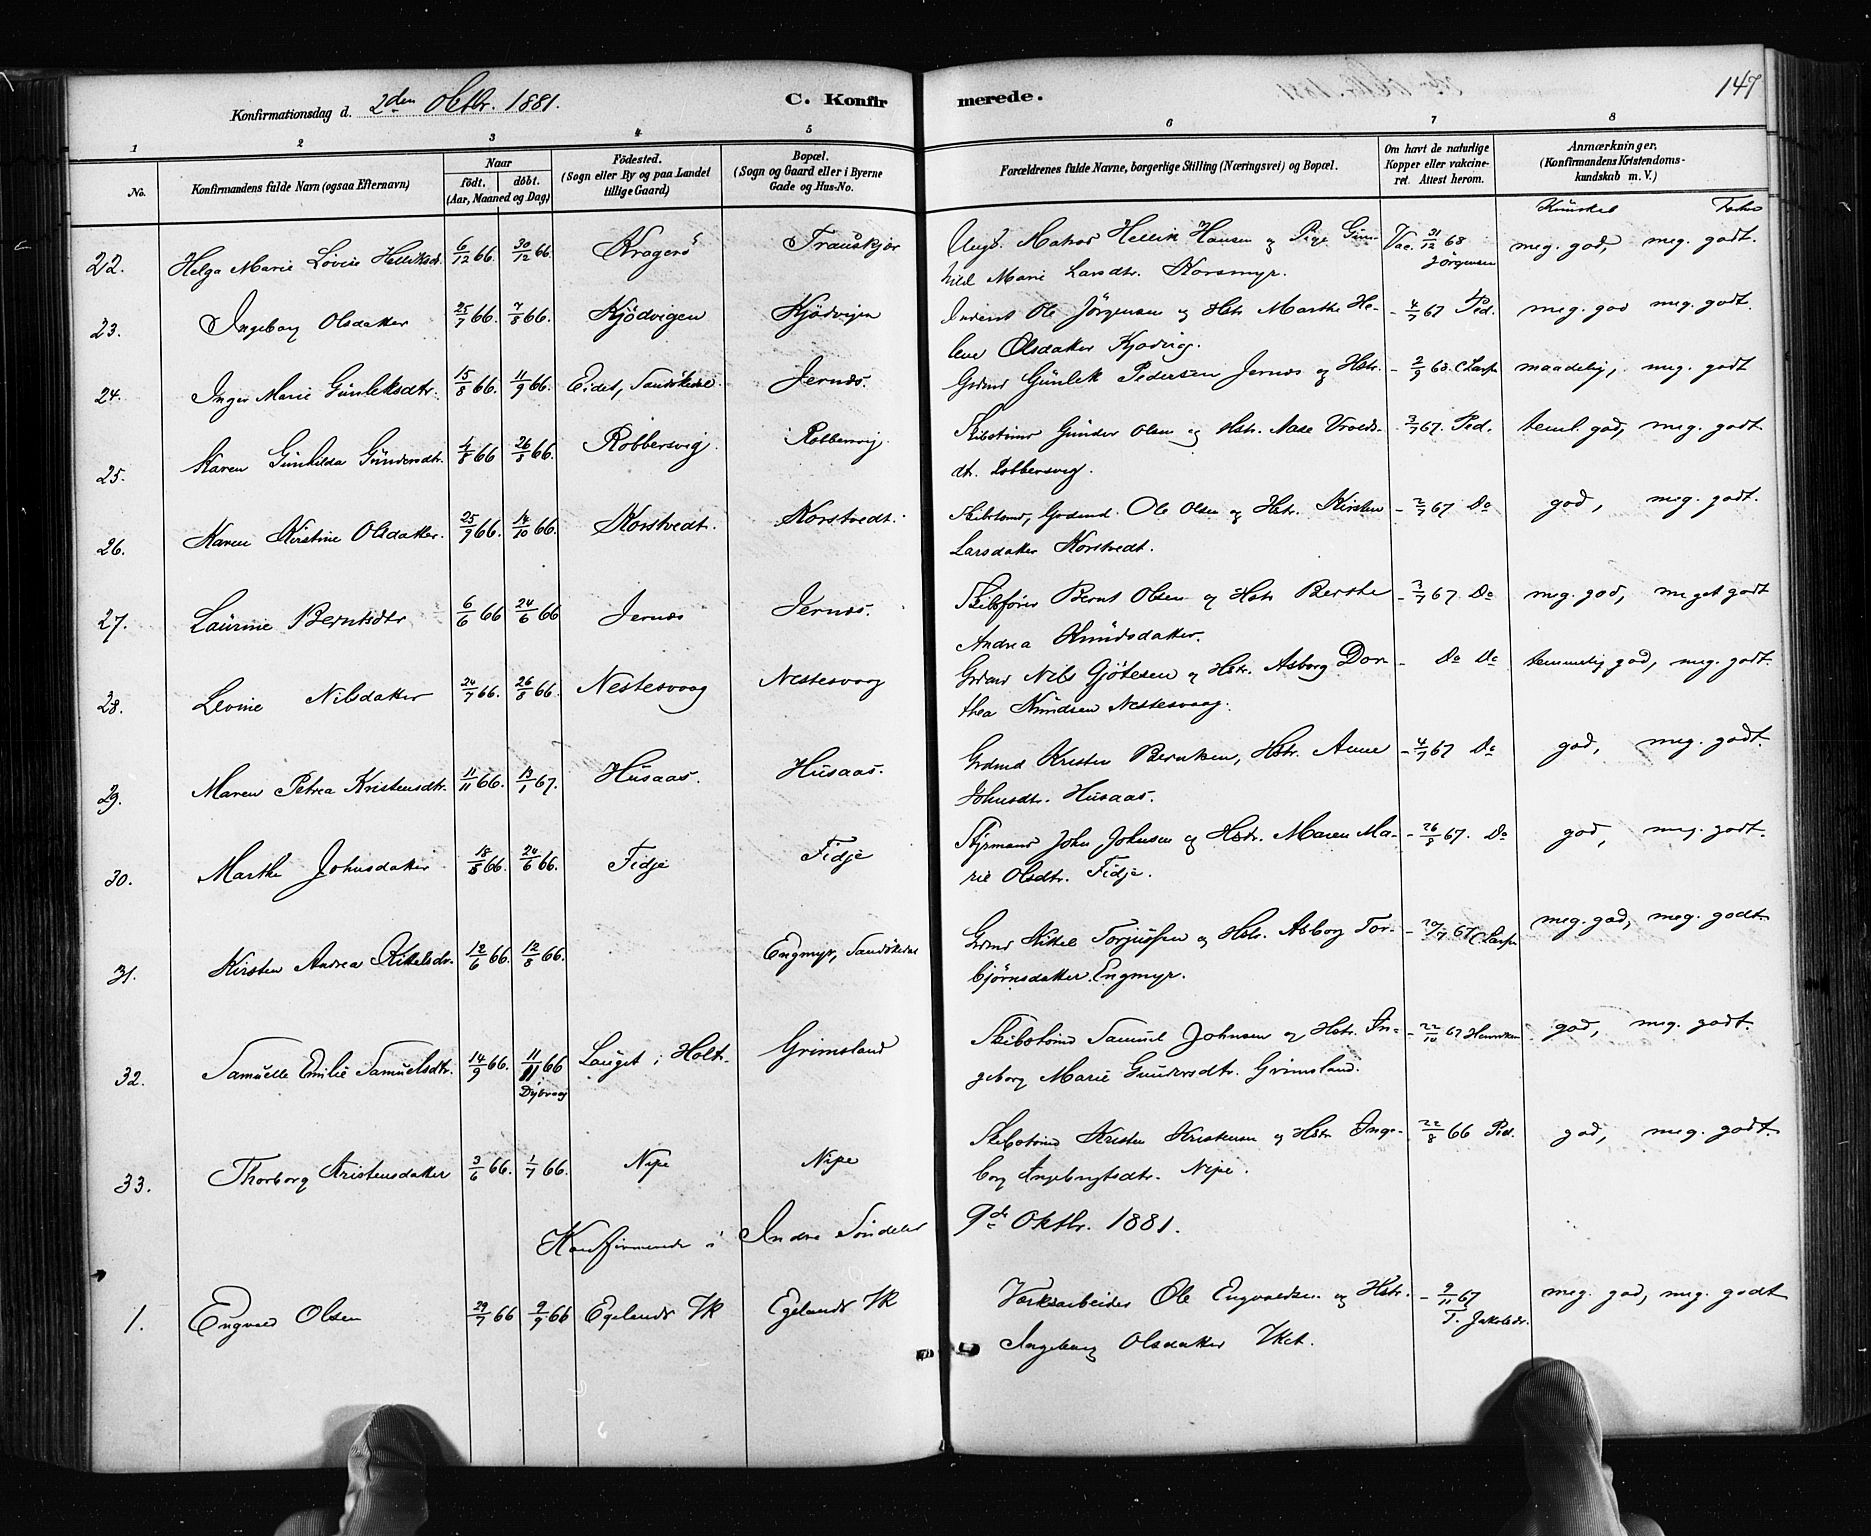 147
Konfirmationsdag d. 2den Oktbr. 1881.
C. Konfirmerede.
1 2 3 4 5 6 7 8
No.
Konfirmandens fulde Navn (ogsaa Efternavn)
Naar
födt. döbt.
(Aar, Maaned og Dag)
Födested.
(Sogn eller By og paa Landet
tillige Gaard)
Bopæl.
(Sogn og Gaard eller i Byerne
Gade og Hus-No.
Forældrenes fulde Navne, borgerlige Stilling (Næringsvei) og Bopæl.
Om havt de naturlige
Kopper eller vakcine-
ret. Attest herom.
Anmærkninger.
(Konfirmandens Kristendoms-
kundskab m. V.)
22. Helga Marie Lovise Helliksdt. 6/12 66. 30/12 66. Kragerö Ungk. Matros Hellik Hansen og Pige Gun- Vac. 31/12 68 meg. god, meg. godt.
hild Marie Larsdtr. Korsmyr. Jörgensen
23. Ingeborg Olsdatter 25/7 66. 7/8 66. Kjödvigen Kjödvigen Inderst Ole Jörgensen og Hstr. Marthe He- - 4/7 67 Ped. meg. god meg. godt.
lene Olsdatter Kjödvig.
24. Inger Marie Gunleksdtr. 15/8 66. 11/9 66. Eidet, Sandökedal. Jernæs. Grdmd Gunlek Pedersen Jernæs og Hstr. - 2/9 68. maadelig, meg. godt
25. Karen Gunhilda Gundersdtr. 4/8 66 26/8 66. Robbersvig. Robbersvig Skibstmd Gunder Olsen og Hstr. Aase - 3/7 67. Ped. teml. god, meg. godt
dt. Robbersvig.
26. Karen Kirstine Olsdatter. 25/9 66. 14/10 66. Korstvedt. Korstvedt. Skibstmd, Grdmd. Ole Olsen og Hstr. Kirsten - 2/7 67 Do god, meg. godt.
Larsdatter Korstvedt.
27. Laurine Berntsdtr 6/6 66 24/6 66 Jernæs Jernæs. Skibsförer Bernt Olsen og Hstr Berthe - 3/7 67. Do meg. god, meget godt
Andrea Knudsdatter.
28. Levine Nilsdatter 24/7 66. 26/8 66. Nestesvaag Nestesvaag Grdmd Nils Gjötesen og Hstr. Asborg Dor- - Do Do temmelig god, meg. godt.
thea Knudsen Nestesvaag.
29. Maren Petrea Kristensdtr. 11/11 66. 13/1 67. Husaas. Husaas. Grdmd Kristen Berntsen, Hstr. Anne - 4/7 67 Do god, meg. godt.
Johnsdtr. Husaas.
30. Marthe Johnsdatter 18/5 66. 24/6 66. Fidje Fidje Styrmand John Johnsen og Hstr. Maren Ma- - 26/8 67. Do god, meg. godt.
rie Olsdtr. Fidje.
31. Kirsten Andrea Kittelsdtr. 12/6 66. 12/8 66. Engmyr, Sandökedal Grdmd Kittel Torjussen og Hstr. Asborg Tor- - 20/7 67 meg. god, meg. godt.
björnsdatter Engmyr.
32. Samuelle Emilie Samuelsdtr. 14/9 66. 11/11 66 Lauget i Holt. Grimsland Skibstmd Samuel Johnsen og Hstr. In- - 22/10 67 Henriksen god, meg. godt.
Dybvaag geborg Marie Gundersdtr. Grimsland.
33. Thorborg Kristensdatter 3/6 66. 1/7 66. Nipe Nipe Skibstmd Kristen Kristensen og Hstr Inge- - 22/8 66 Ped. god, meg. godt.
borg Ingebregtsdtr. Nipe.
Konfirmerede i Indre Söndeled 9de Oktbr. 1881.
1. Engvald Olsen 29/7 66 2/9 66 Egelands Vk Egelands Vk Værksarbeider Ole Engvaldsen og Hstr. - 9/11 67 meg. god, meg. godt
Ingeborg Olsdatter Vket. T. Jakobsdr.